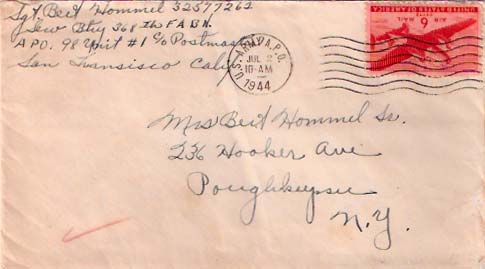 Sgt. Bert Hommel 32577262
Serv Btry 368th F A BN.
A P.O. 98 Unit #1 c/o Postmas
San Fransisco Calif
U.S. ARMY A.P.O.
JUL 2
10-AM
1944
UNITED STATES OF AMERICA
AIR MAIL
6
CENTS
Mrs Bert Hommel Sr.
236 Hooker Ave
Poughkeepsie
N.Y.